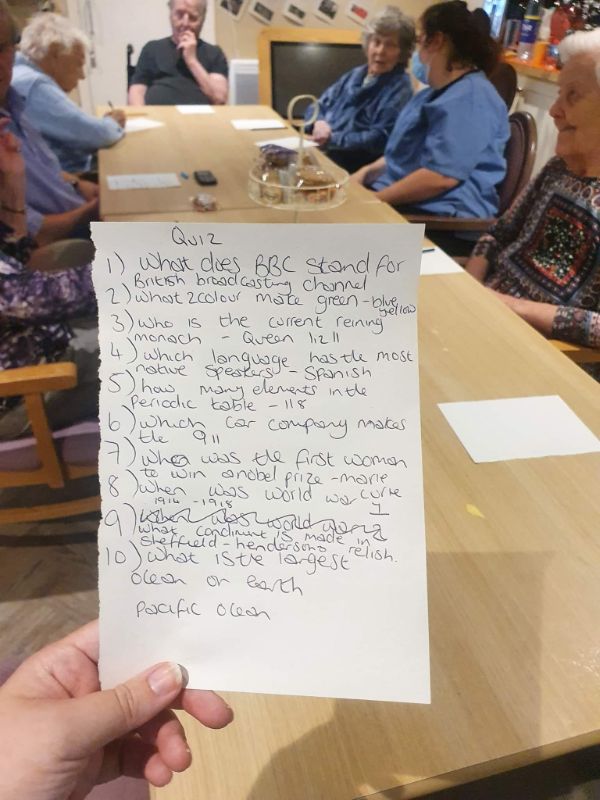 Quiz
1) what does BBC stand for
British broadcasting channel
2) what 2 colour make green - blue
yellow
3) who is the current reining
monach - Queen liz II
4) which language has the most
native speakers - Spanish
5) how many elements in the
periodic table - 118
6) which car company makes
the 911
7) when was the first woman
to win a nobel prize - marie
curie
8) when was world war 1
1914 - 1918
9) when was world war 2
what condiment is made in
sheffield - hendersons relish.
10) what is the largest
ocean on earth
pacific ocean